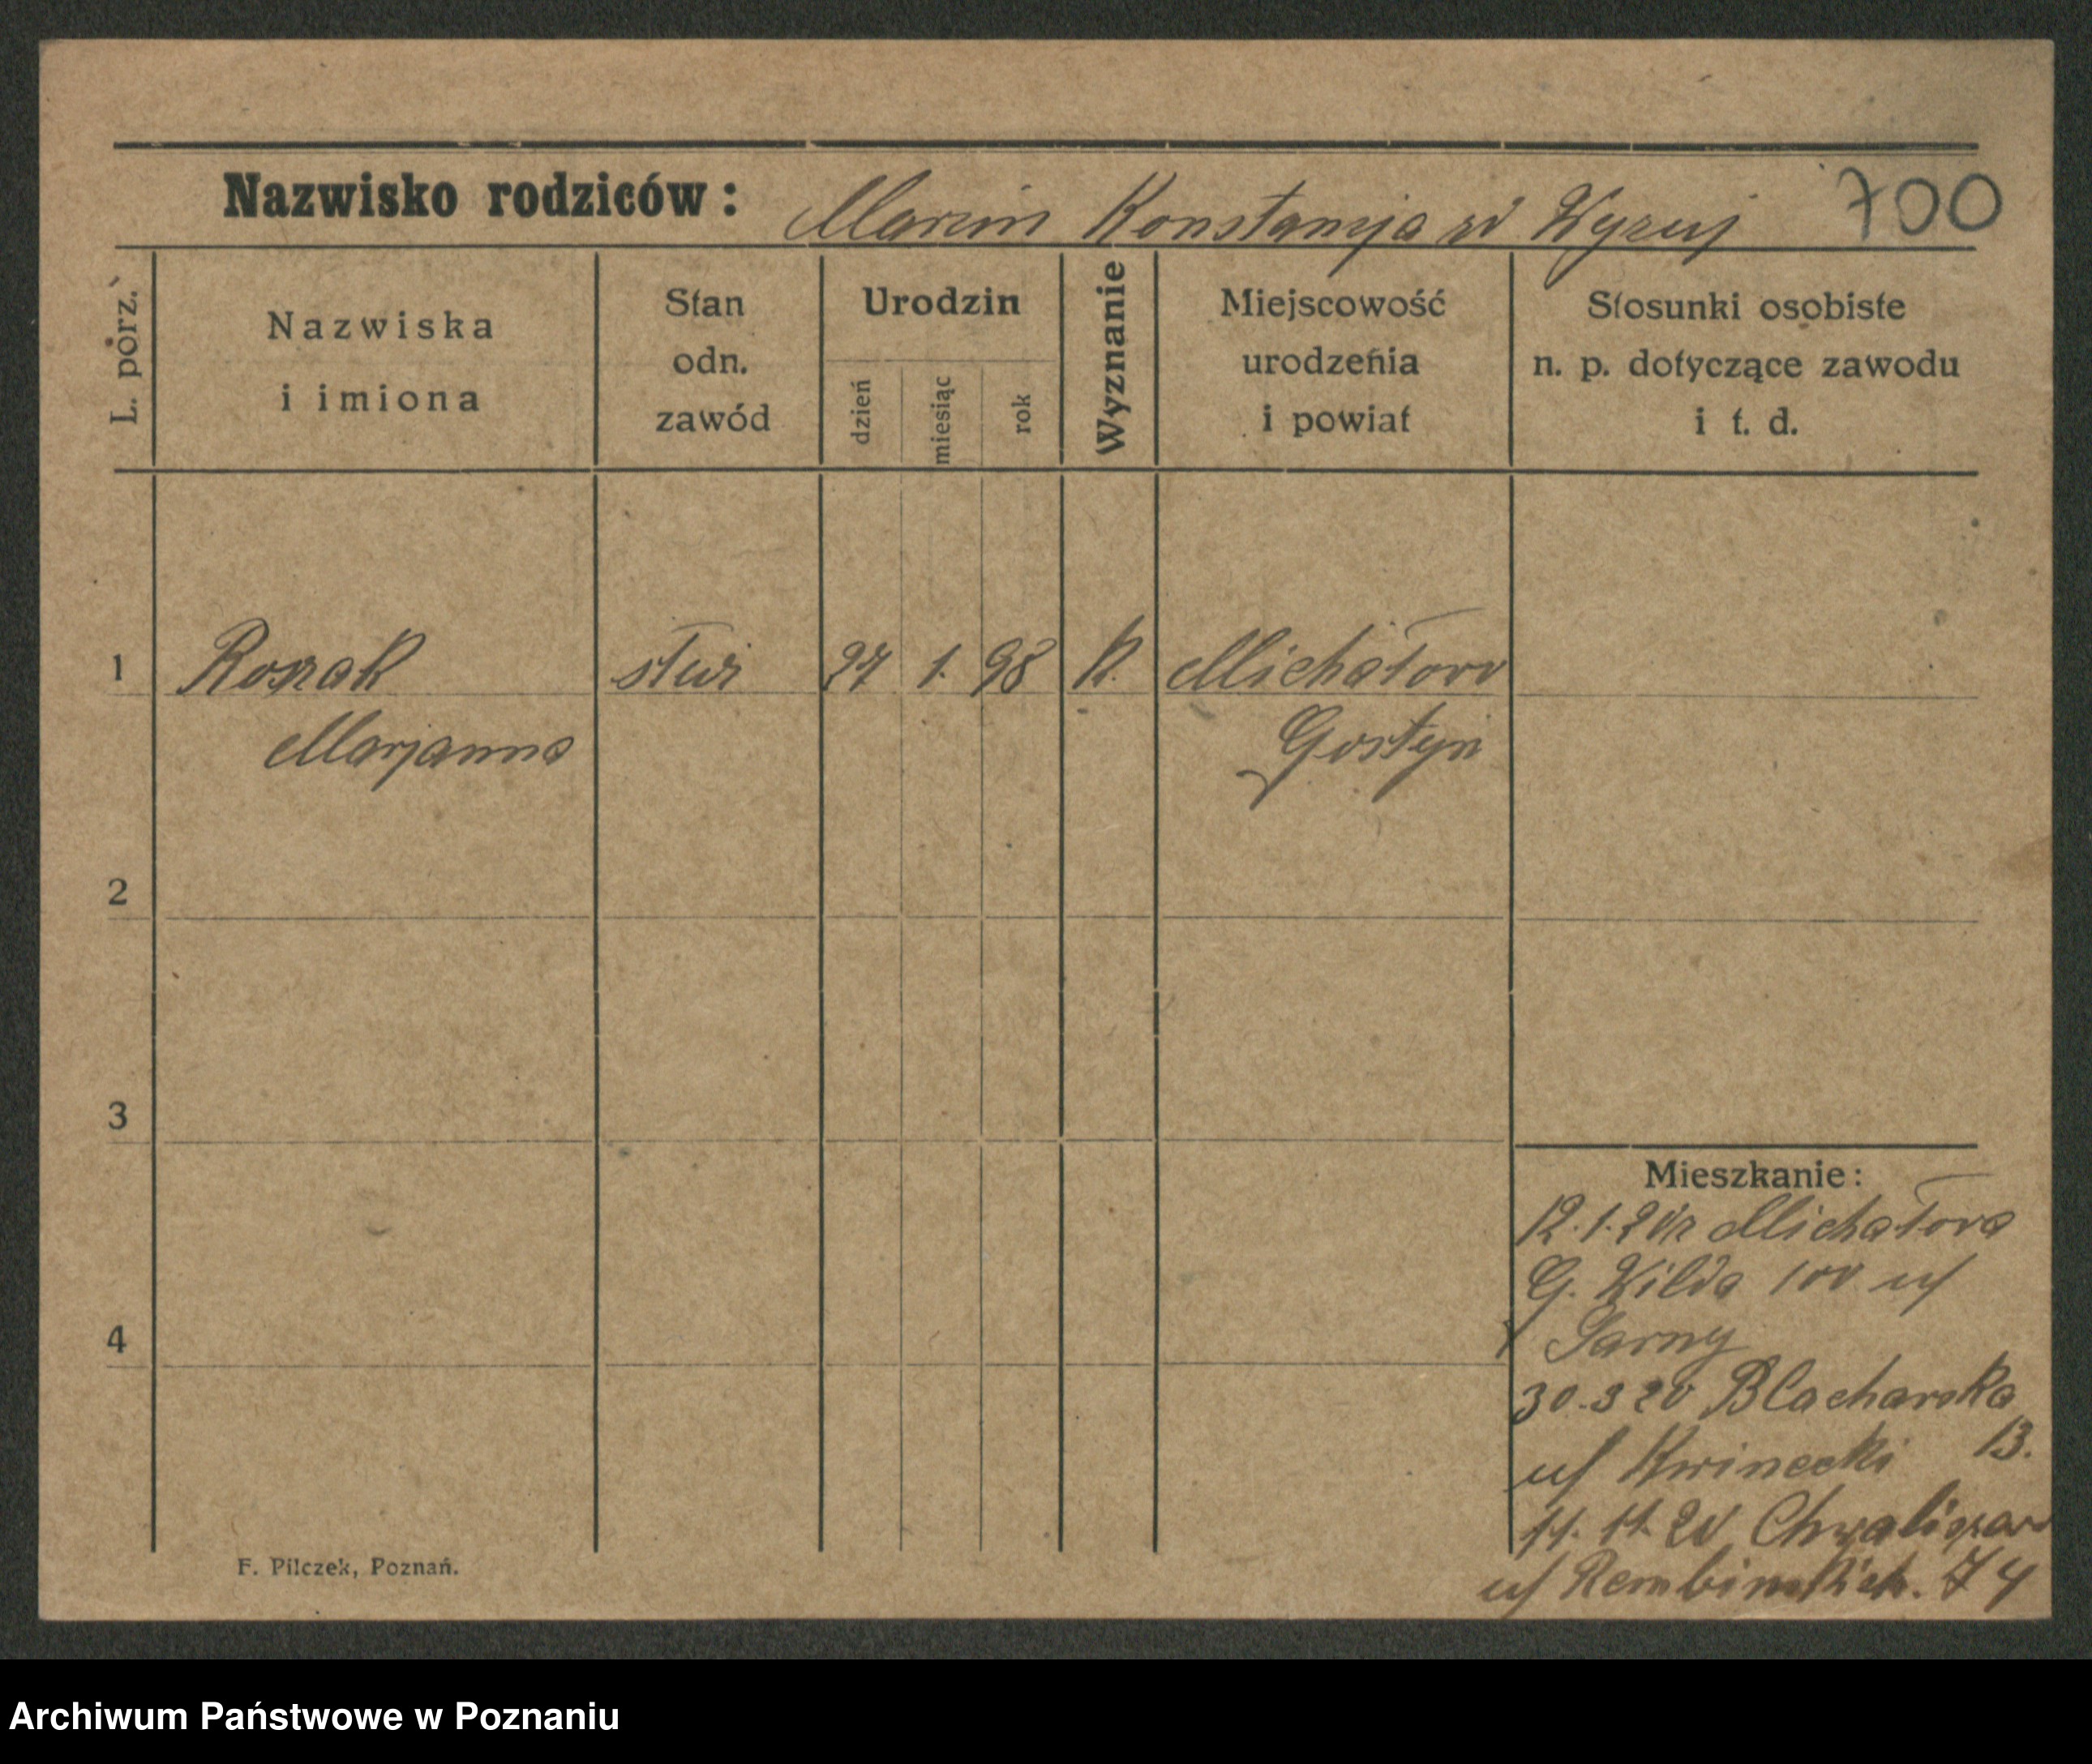 Nazwisko rodziców: Marcin Konstancja zd Wyzuj 700
L. porz.
Nazwiska
i imiona
Stan
odn.
zawód
Urodzin
dzień
miesiąc
rok
Wyznanie
Miejscowość
urodzenia
i powiat
Stosunki osobiste
n. p. dotyczące zawodu
i t. d.
1 Rozak służ 27 1. 98 K. Michałowo
Marjanna Gostyń
2
3
4
Mieszkanie:
12.1.20 Michałowa
G. Wilda 100 u/
Sarny
30.3 20 Blacharska
u/ Kwinecki 13.
11. 11. 20
u/ 74
F. Pilczek, Poznań.
Archiwum Państwowe w Poznaniu